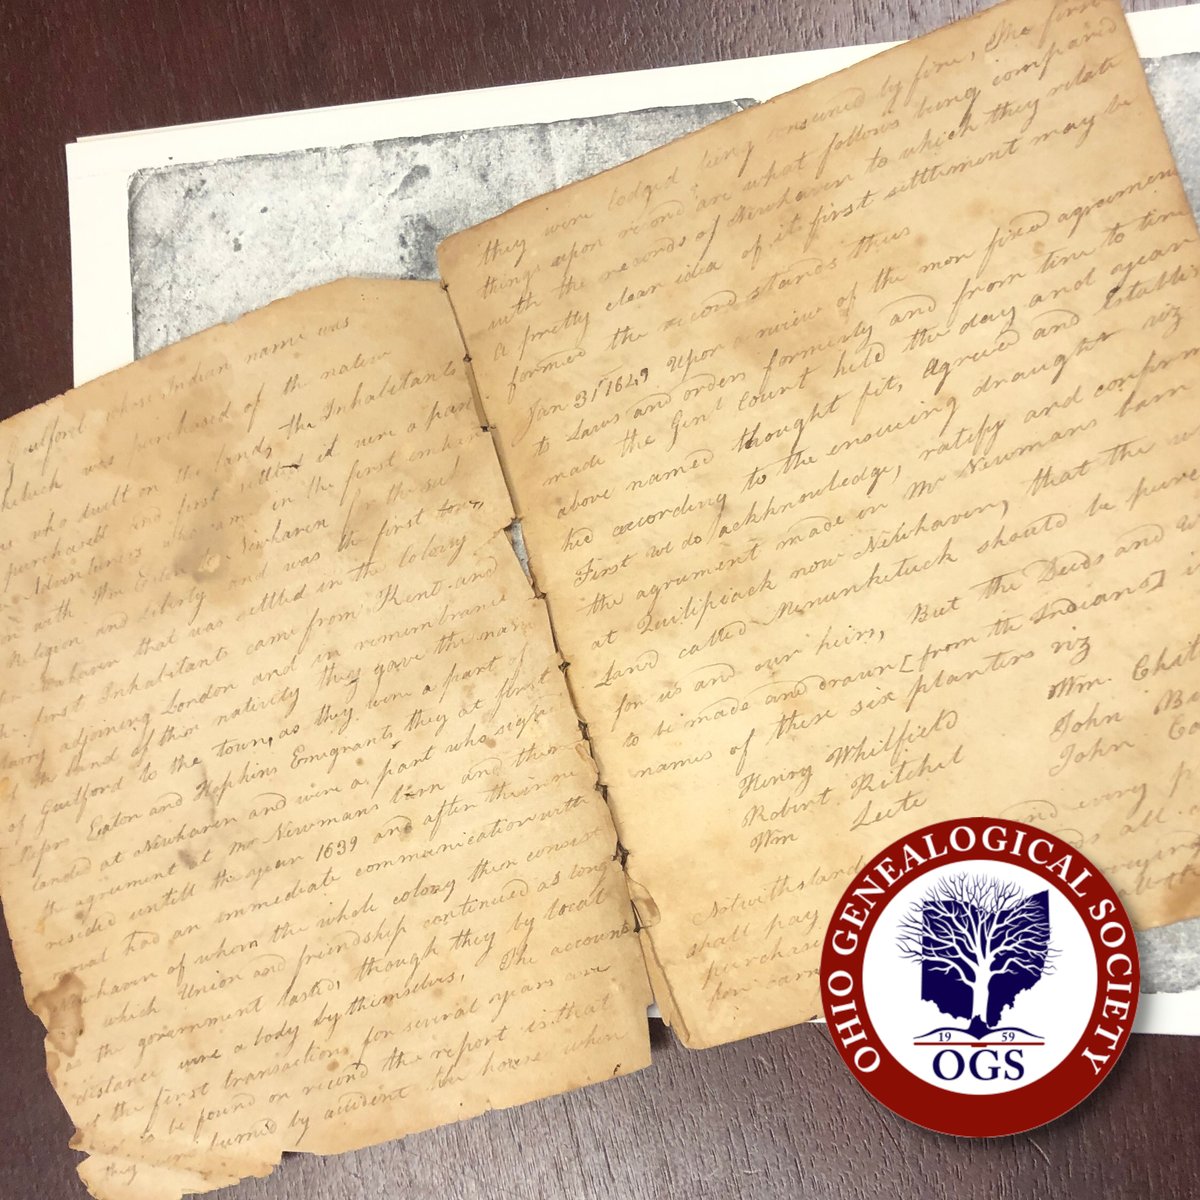 Guilford whose Indian name was
which was purchased of the native
who dwelt on the land, the Inhabitants
purchased and first settled it were a part
Adventurers who came in the first
with Wm Eaton to Newhaven for the sak
Religion and liberty and was the first town
Newhaven that was settled in the Colony
first Inhabitants came from Kent and
adjoining London and in remembrance
of the land of their nativity they gave the name
of Guilford to the town, as they were a part of
Messrs Eaton and Hopkins Emigrants they at first
landed at Newhaven and were a part who signed
the agrument at Mr Newmans barn and there
resided untill the year 1639 and after their re
moval had an immediate communication with
Newhaven of whom the whole colony then consist
which Union and friendship continued as long
as the government lasted, though they by local
distance were a body by themselves, The accounts
of the first transactions for several years are
to be found on record the report is that
they were burned by accident the house where
they were lodged being consumed by fire, The first
things upon record are what follows being compared
with the records of Newhaven to which they relate
a pretty clear idea of it first settlement may be
formed the record stands thus
Jan 31st 1649 Upon a review of the mor fixed agreement
to Laws and orders formerly and from time to time
made the Genl Court held the day and year
above named thought fit, agreed and Establi
hed according to the ensueing draught viz
First we do ackknowledge, ratify and confirm
the agrument made in Mr Newmans barn
at Quilipiack now Newhaven, that the
Land called Menunketuck should be purc
for us and our heirs, But the Deeds and
to be made and drawn [from the Indians] i
names of these six planters viz
Henry Whitfield Wm. Chit
Robert Kitchel John B
Wm Leete John Co
Notwithstand and every p
shall pay all
purchase
for
OHIO GENEALOGICAL SOCIETY
19 59
OGS